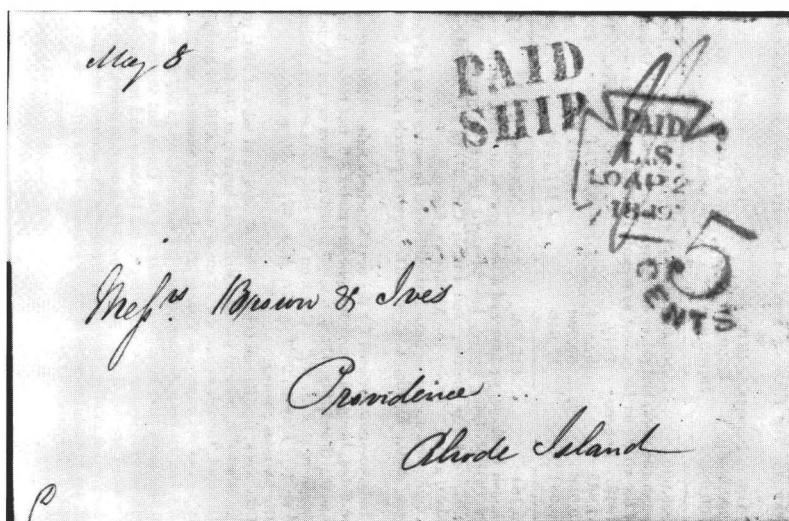 May 8
PAID
SHIP
PAID
L.S.
5
CENTS
Messrs. Brown & Ives
Providence
Rhode Island